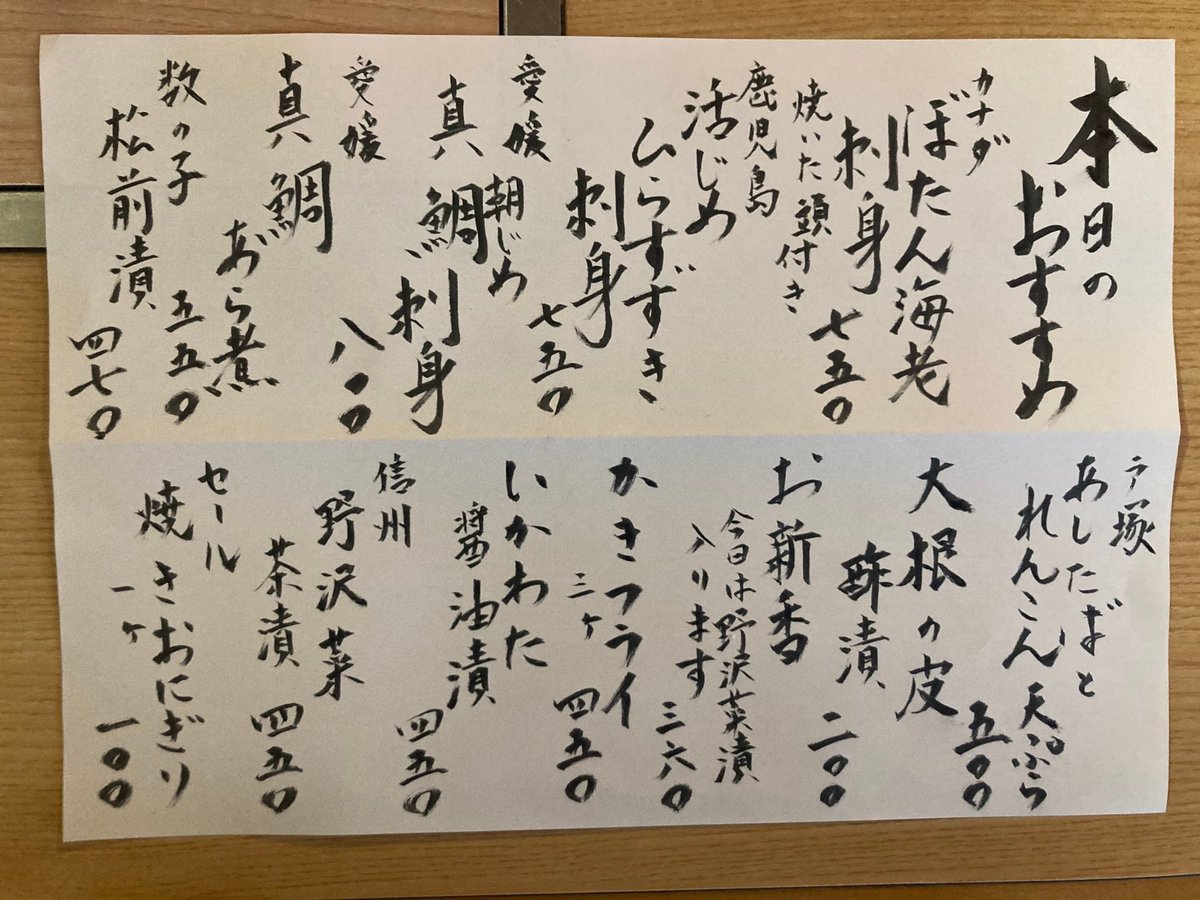 本日の
おすすめ
カナダ
ぼたん海老
刺身
七五〇
焼いた頭付き
鹿児島
活じめ
ひらすずき
刺身
七五〇
愛媛
朝じめ
真鯛刺身
八〇〇
愛媛
真鯛
あら煮
五五〇
数の子
松前漬
四七〇
戸塚
あしたばと
れんこん天ぷら
五〇〇
大根の皮
酢漬
二〇〇
お新香
今日は野沢菜漬
入ります
三六〇
かきフライ
三ヶ
四五〇
いかわた
醤油漬
四五〇
信州
野沢菜
茶漬
四五〇
セール
焼きおにぎり
一ヶ
一〇〇